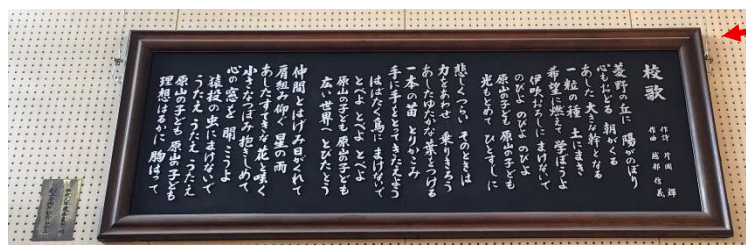 校歌
作詩 片岡 輝
作曲 越部 信義
菱野の丘に 陽がのぼり
心もおどる 朝がくる
あした大きな幹となる
一粒の種 土にまき
希望に燃えて 学ぼうよ
伊吹おろしに まけないで
のびよ のびよ のびよ
原山の子ども 原山の子ども
光もとめて ひとすじに
悲しくつらい そのときは
力をあわせ 乗りきろう
あしたゆたかな 実をつける
一本の苗 とりかこみ
手に手をとって きたえよう
はばたく鳥に まけないで
とべよ とべよ とべよ
原山の子ども 原山の子ども
広い世界へ とびたとう
仲間とはげみ日がくれて
肩組み仰ぐ 星の雨
あしたすてきな 花と咲く
小さなつぼみ 抱きしめて
心の窓を 開こうよ
猿投の虫に まけないで
うたえ うたえ うたえ
原山の子ども 原山の子ども
理想はるかに 胸はって